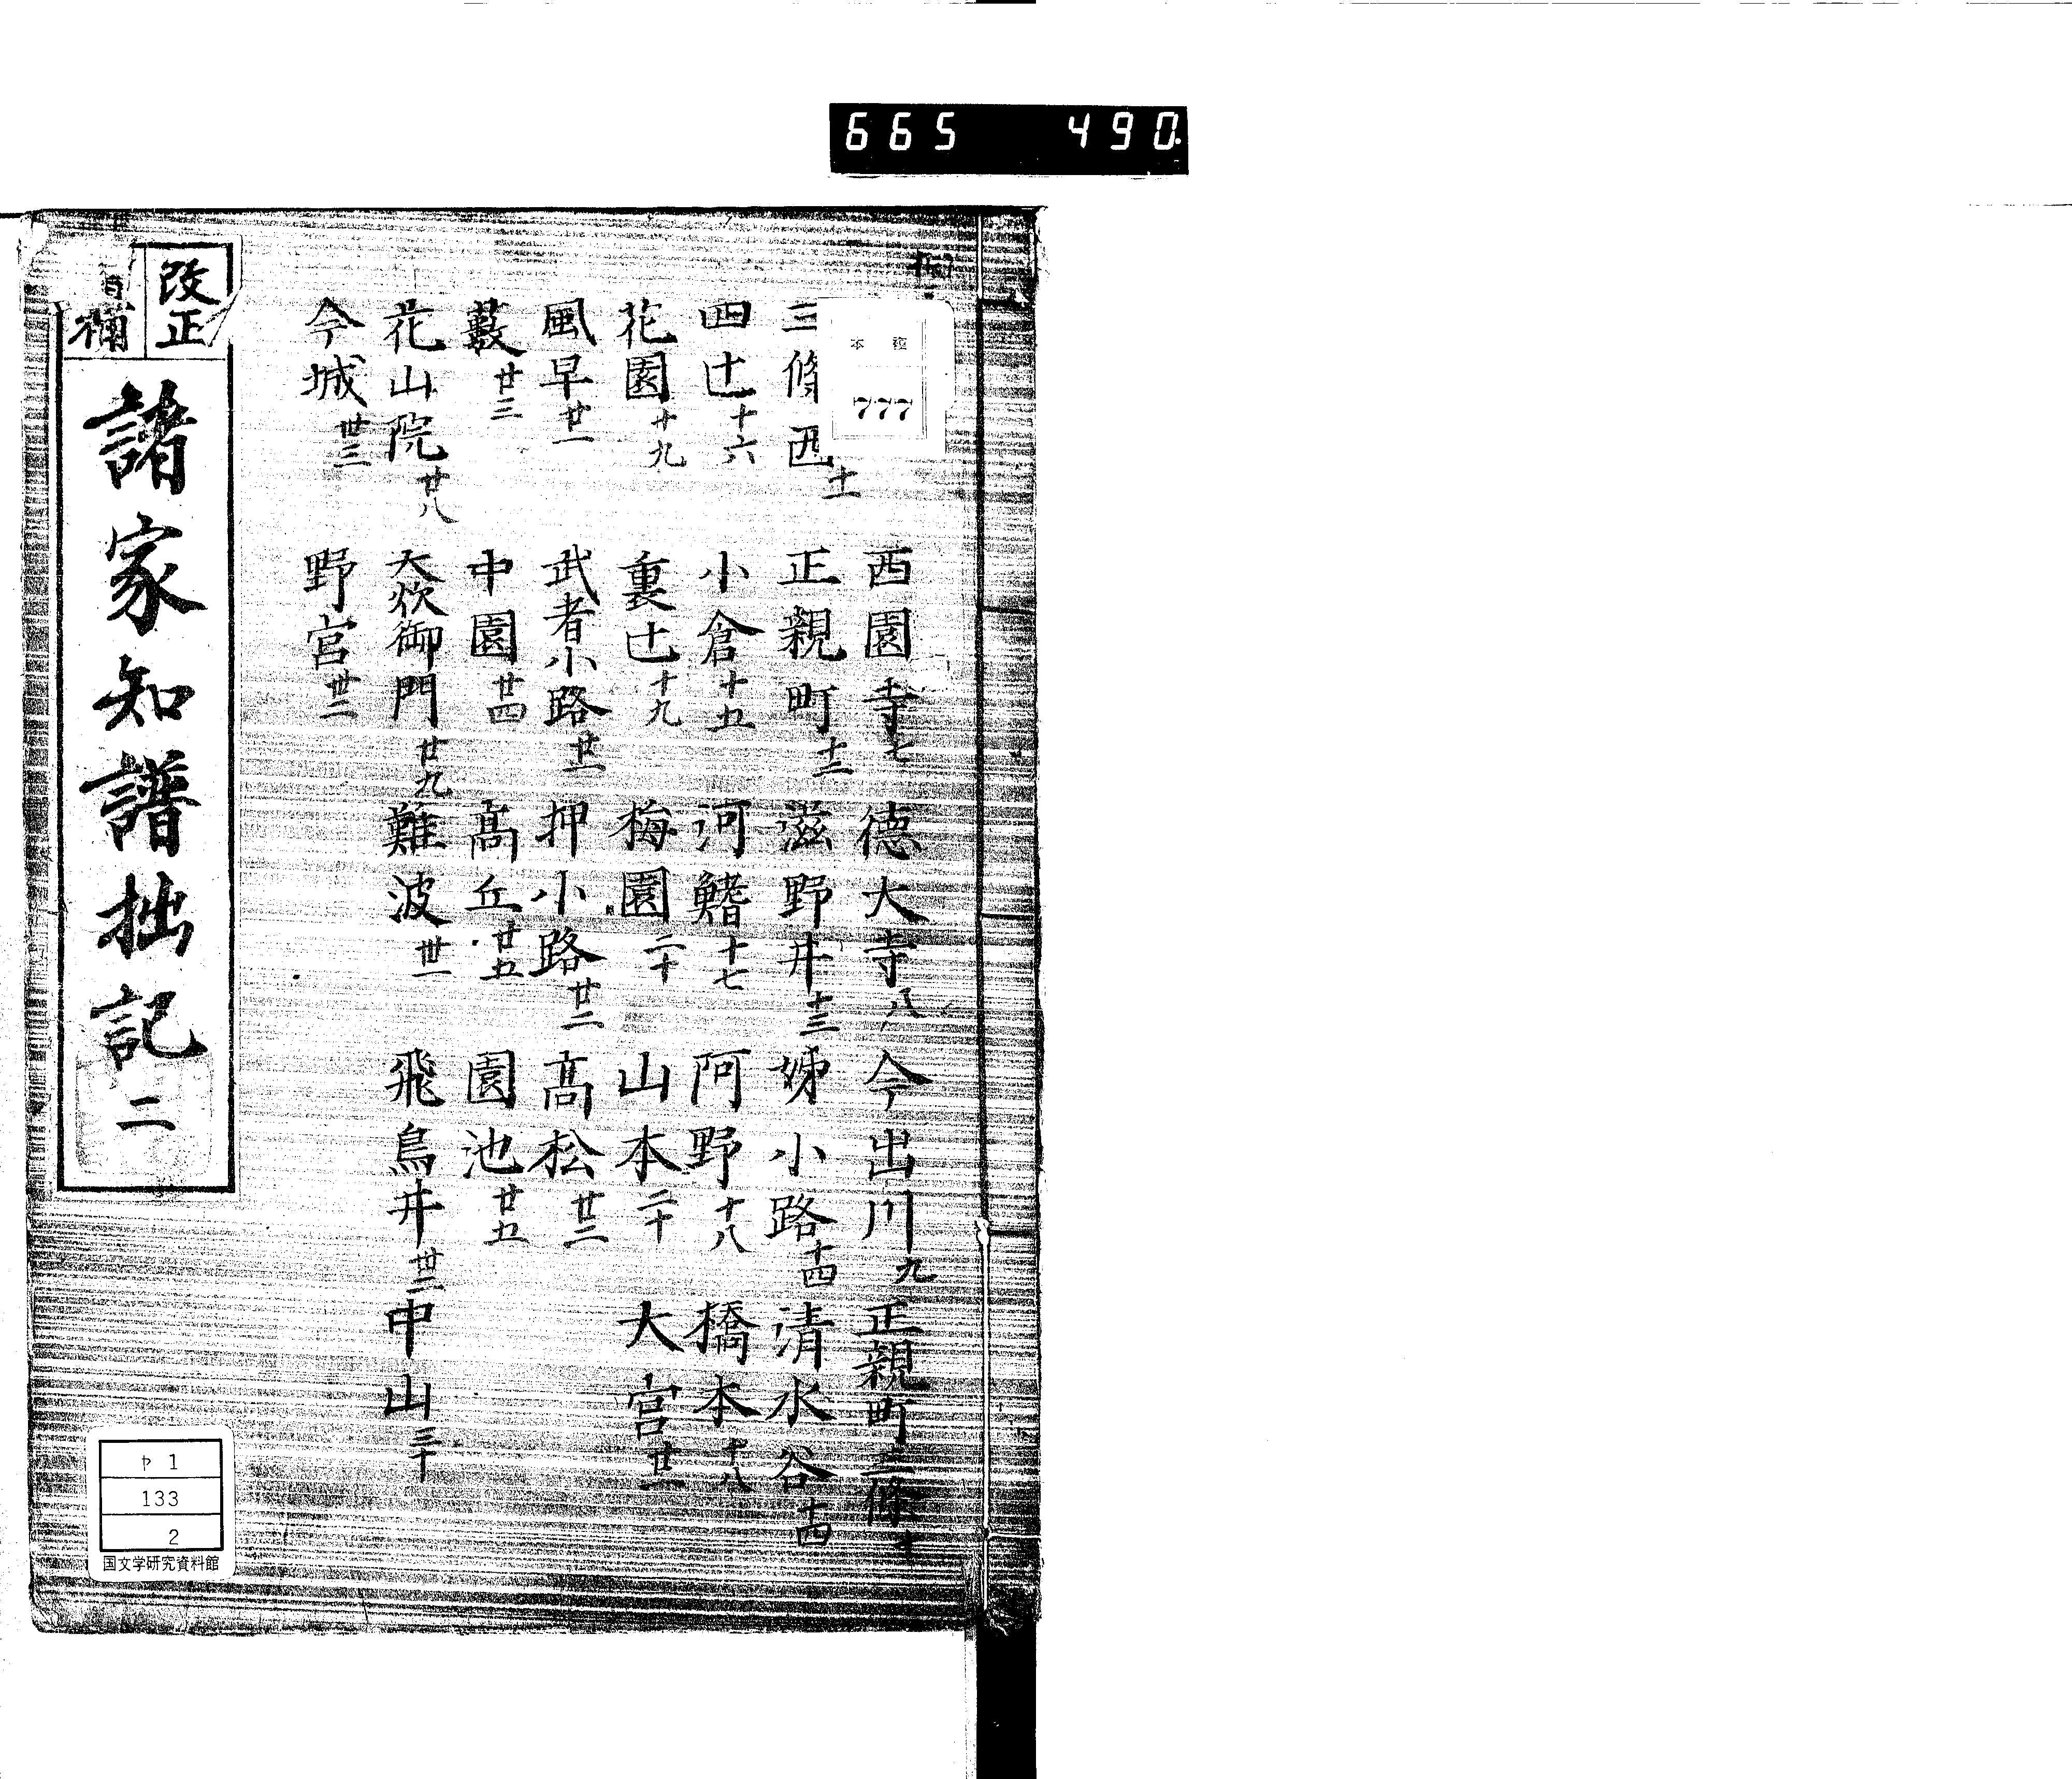 665 490.
777
西園寺七 德大寺八 今出川九 正親町三條十
三條西十一 正親町十二 滋野井十三 姊小路十四 清水谷十四
四辻十六 小倉十五 河鰭十七 阿野十八 橋本十八
花園十九 裏辻十九 梅園二十 山本二十 大宮廿一
風早廿一 武者小路廿二 押小路廿二 髙松廿三
藪廿三 中園廿四 髙丘廿五 園池廿五
花山院廿八 大炊御門廿九 難波卅一 飛鳥井卅二 中山三十
今城卅三 野宮卅三
改正
補
諸家知譜拙記 二
ヤ1
133
2
国文学研究資料館